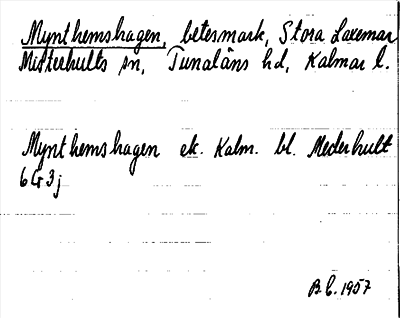 Mynthemshagen, betesmark, Stora Laxemar
Misterhults sn, Tunaläns hd, Kalmar l.
Mynthemshagen ek. Kalm. bl. Mederhult
6G3j
B.C. 1957